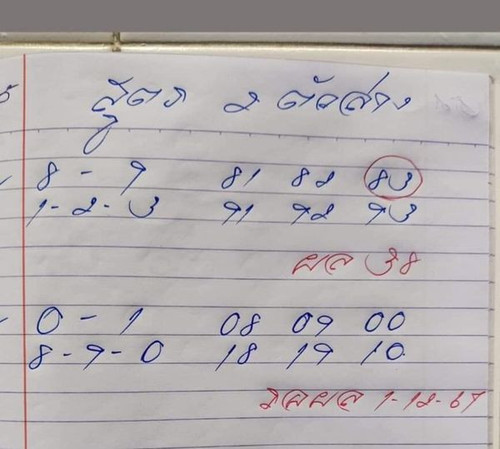 สูตร 2 ตัวล่าง
8 - 9 81 82 83
1 - 2 - 3 91 92 93
ผล 38
0 - 1 08 09 00
8 - 9 - 0 18 19 10
รอผล 1-12-67